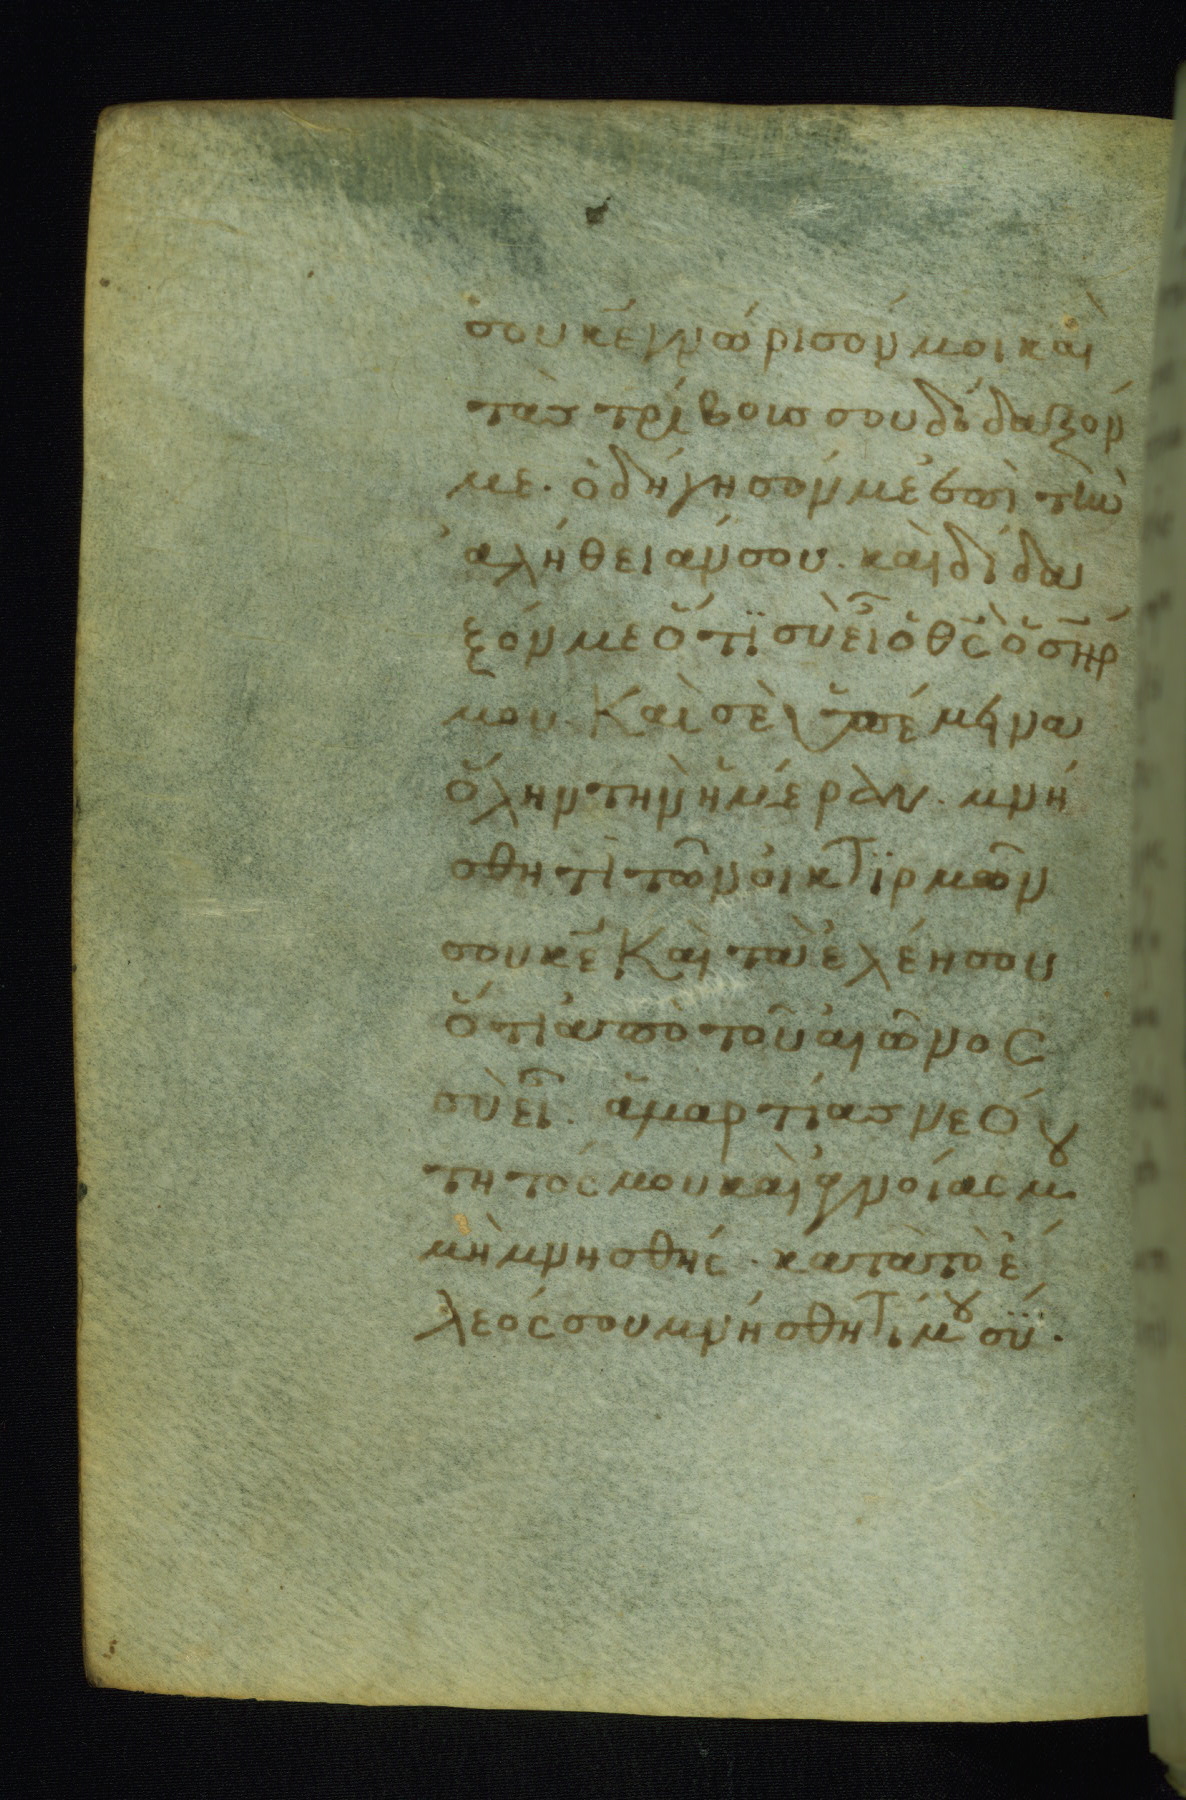 σου κ̅ε̅ γνώρισόν μοι καὶ
τὰς τρίβους σου δίδαξόν
με. ὁδήγησόν με ἐπὶ τὴν
ἀλήθειάν σου. καὶ δίδα
ξόν με ὅτι σὺ εἶ ὁ θ̅ς̅ ὁ σ̅η̅ρ̅
μου. Καὶ σὲ ὑπέμεινα
ὅλην τὴν ἡμέραν. μνή
σθητι τῶν οἰκτιρμῶν
σου κ̅ε̅ Καὶ τὰ ἐλέη σου
ὅτι ἀπὸ τοῦ αἰῶνος
σὺ εἶ. ἁμαρτίας νεό
τητός μου καὶ ἀγνοίας μου
μὴ μνησθῇς. κατὰ τὸ ἔ
λεός σου μνήσθητί μου σύ.